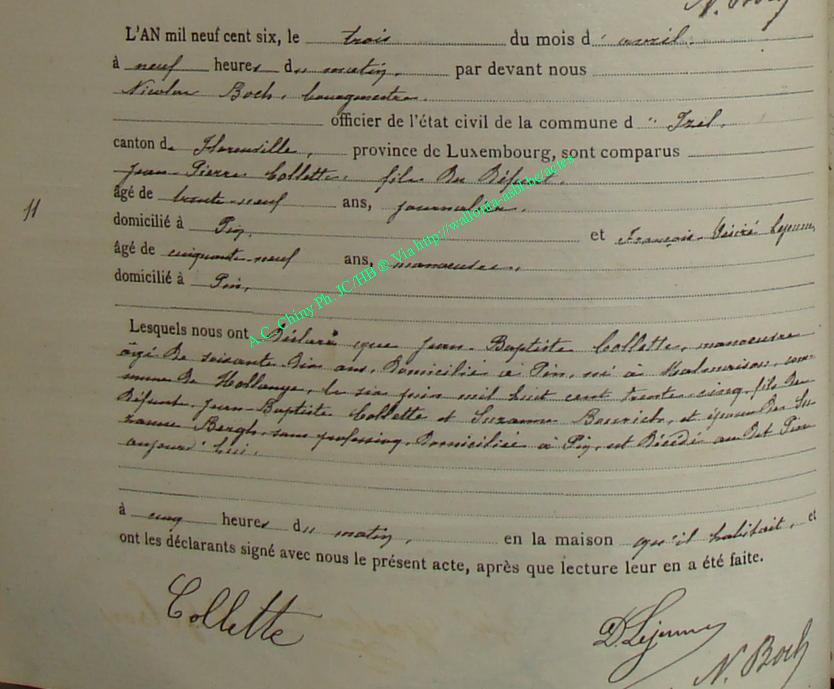 N. Boch
L'AN mil neuf cent six, le trois du mois d'avril.
à neuf heures du matin, par devant nous
Nicolas Boch, bourgmestre,
officier de l'état civil de la commune d'Izel,
canton de Florenville, province de Luxembourg, sont comparus
Jean-Pierre Collette, fils du Défunt,
âgé de trente-neuf ans, journalier,
11
domicilié à Pin, et François-Désiré Lejeune,
âgé de cinquante-neuf ans, manoeuvre,
domicilié à Pin,
A.C. Chiny Ph. JC/HB ® Via http://wallonia-asbl.be/actes
Lesquels nous ont Déclaré que Jean-Baptiste Collette, manoeuvre
âgé de soixante-dix ans, Domicilié à Pin, né à Malmaison, com-
mune de Hollange, le six juin mil huit cent trente-cinq, fils des
Défunts Jean-Baptiste Collette et Suzanne Bourich, et époux de Su-
zanne Bergh, sans profession, Domiciliée à Pin, est Décédé au dit Pin
aujourd'hui,
à cinq heures du matin, en la maison qu'il habitait, et
ont les déclarants signé avec nous le présent acte, après que lecture leur en a été faite.
Collette
D. Lejeune
N. Boch